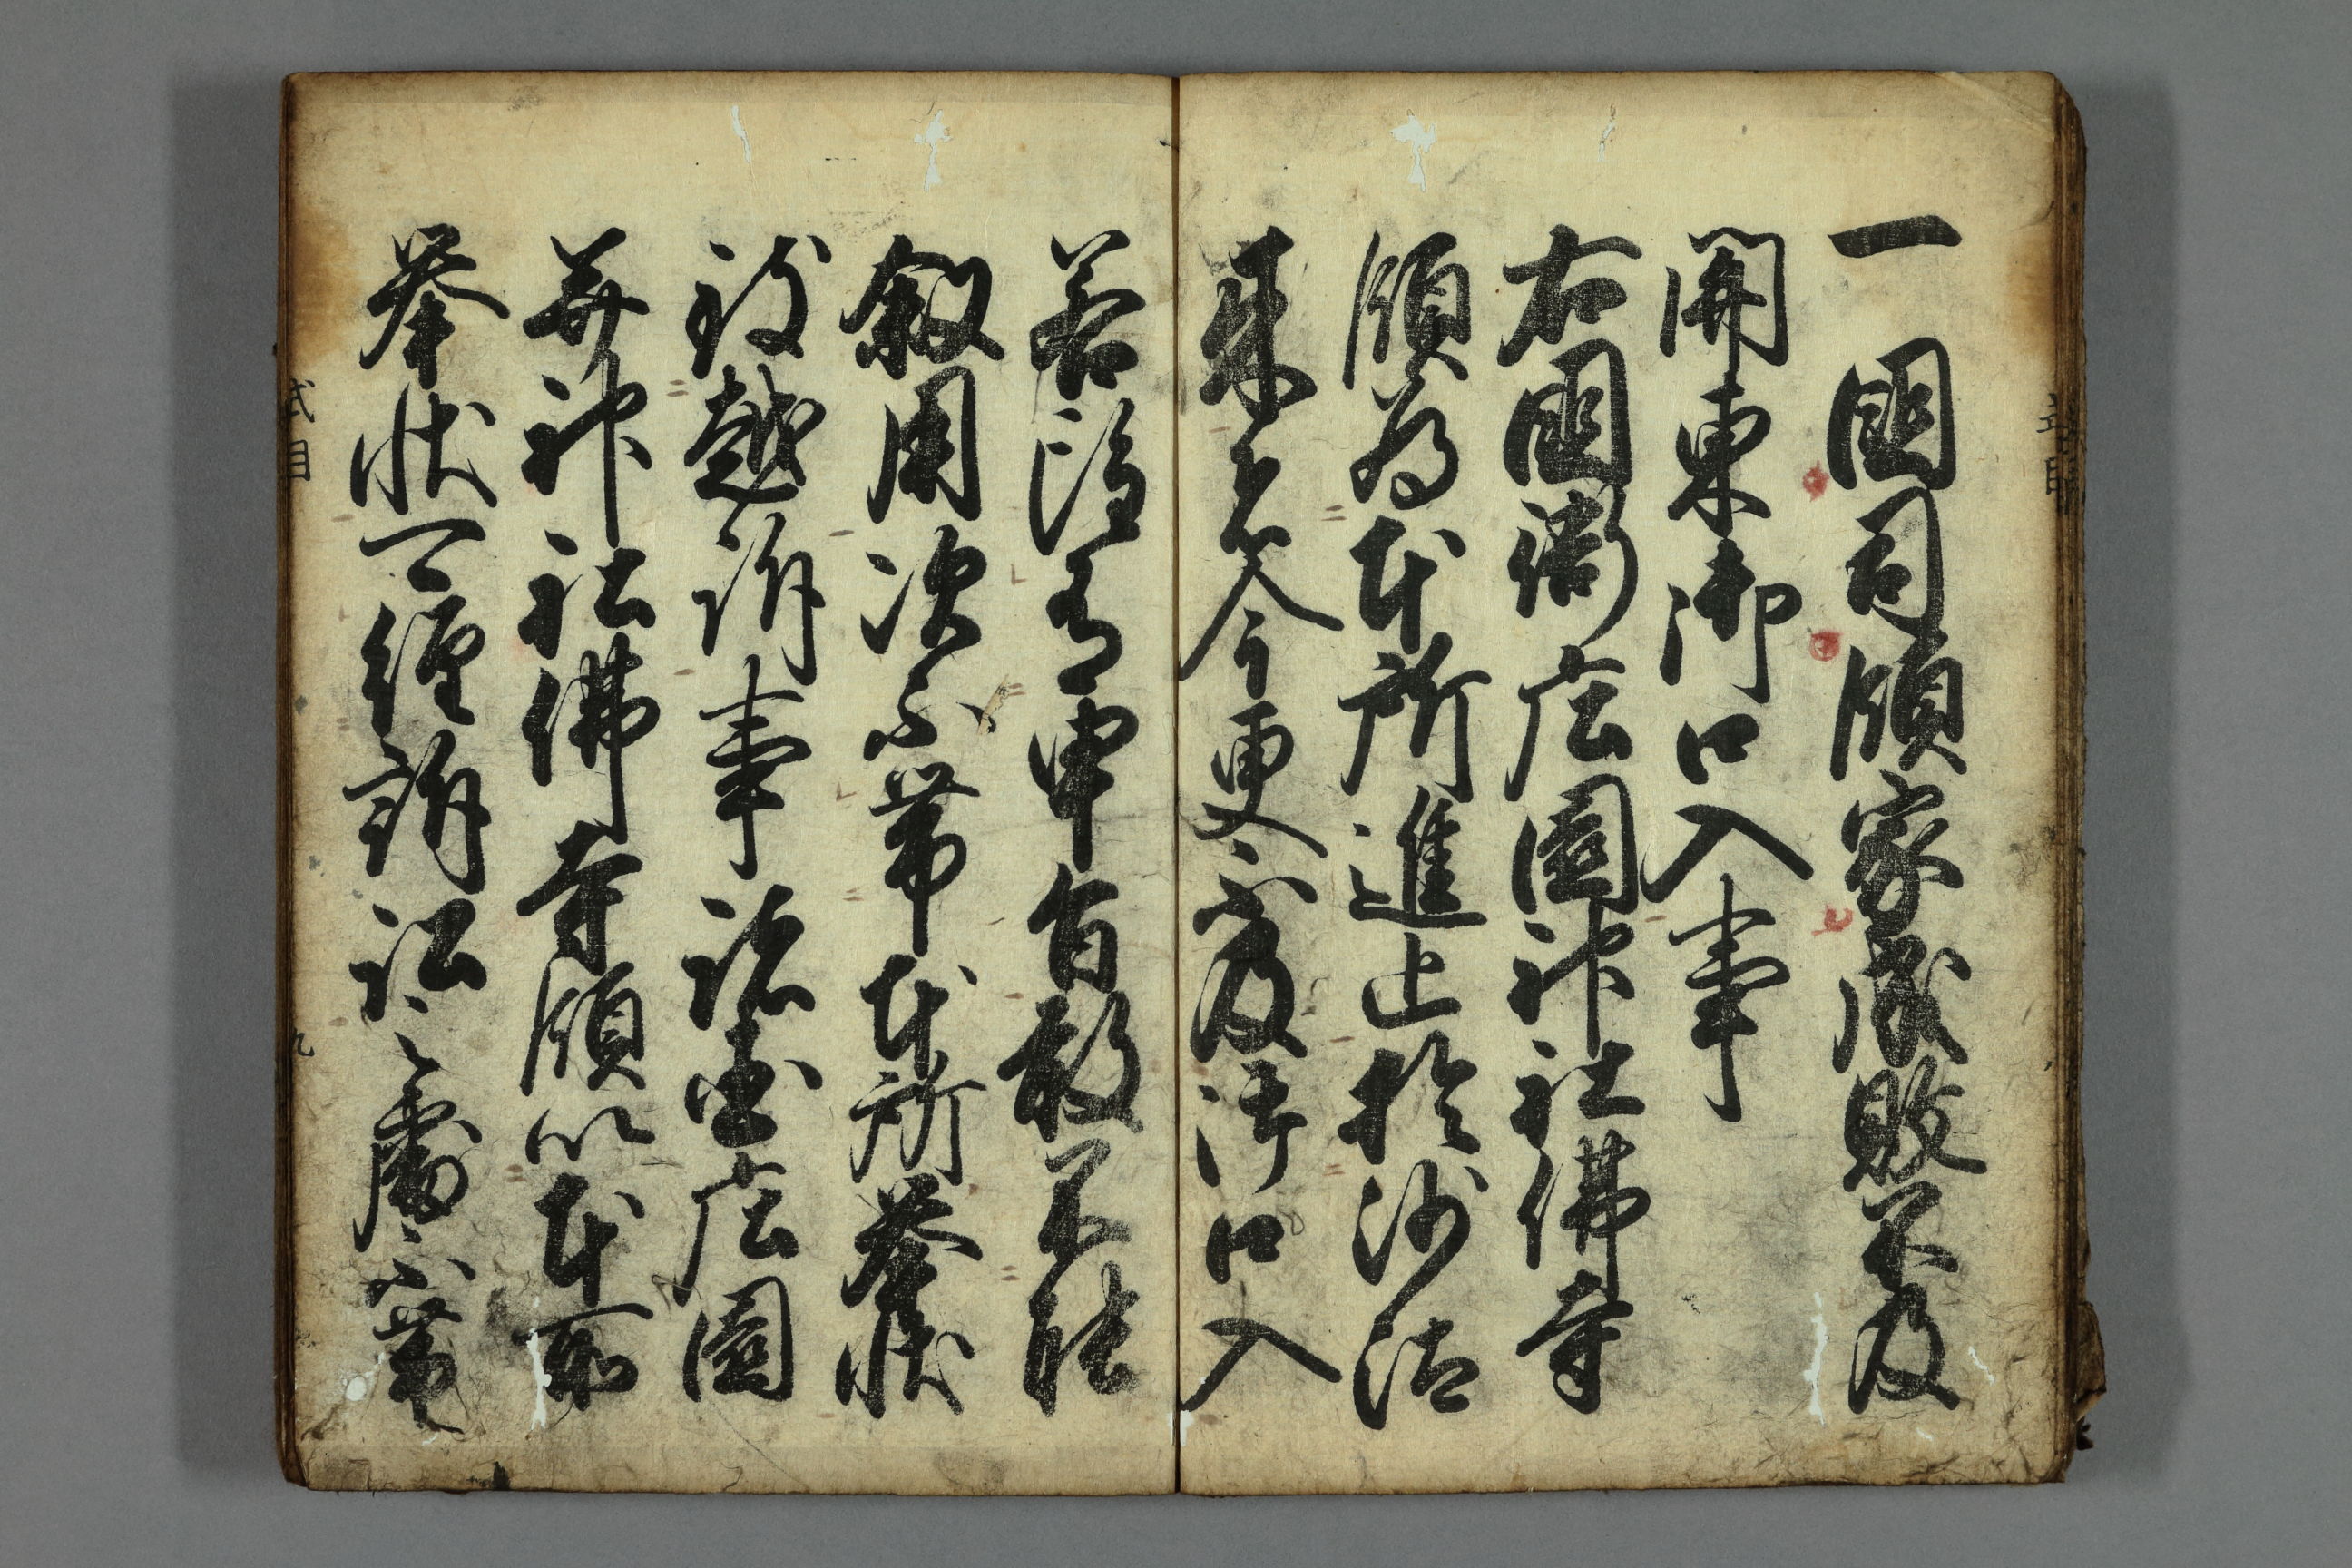 一国司領家成敗不及
関東御口入事
右国衙庄園神社佛寺
領為本所進止於沙汰
来者今更不及御口入
若雖有申旨敢不能
叙用次不帯本所挙状
致越訴事諸国庄園
并神社佛寺領以本所
挙状可経訴訟之處不帯
式目
九